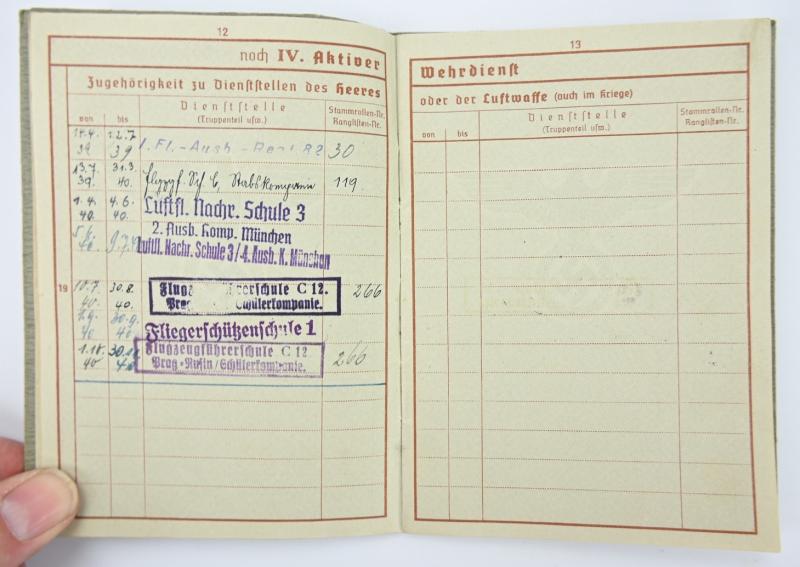 12
noch IV. Aktiver
Zugehörigkeit zu Dienststellen des Heeres
von bis Dienststelle (Truppenteil usw.) Stammrollen-Nr. Ranglisten-Nr.
39. 39 1. Fl.-Ausb.- 82 30
13.7. 39. 31.3. 40. Stabskompanie 119.
1.4. 40. 4.6. 40. Luftfl. Nachr. Schule 3
2. Ausb. Komp. München
Luftfl. Nachr. Schule 3/4. Ausb. K. München
19 10.7. 40. 30.8. 40. Flugz führerschule C 12. 266
Prag Schülerkompanie.
40 30.9. 40. Fliegerschützenschule 1
40 Flugzeugführerschule C 12 266
Prag-Rusin/Schülerkompanie.
13
Wehrdienst
oder der Luftwaffe (auch im Kriege)
von bis Dienststelle (Truppenteil usw.) Stammrollen-Nr. Ranglisten-Nr.